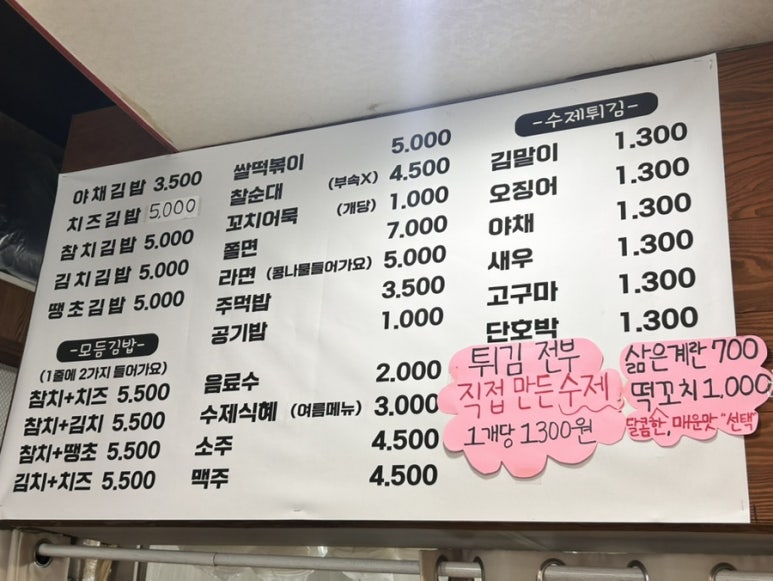 야채김밥 3.500
치즈김밥 5,000
참치김밥 5.000
김치김밥 5.000
땡초김밥 5.000
-모듬김밥-
(1줄에 2가지 들어가요)
참치+치즈 5.500
참치+김치 5.500
참치+땡초 5.500
김치+치즈 5.500
쌀떡볶이 5.000
찰순대 (부속X) 4.500
꼬치어묵 (개당) 1.000
쫄면 7.000
라면 (콩나물들어가요) 5.000
주먹밥 3.500
공기밥 1.000
음료수 2.000
수제식혜 (여름메뉴) 3.000
소주 4.500
맥주 4.500
-수제튀김-
김말이 1.300
오징어 1.300
야채 1.300
새우 1.300
고구마 1.300
단호박 1.300
튀김 전부
직접 만든 수제
1개당 1300원
삶은계란 700
떡꼬치 1,000
달콤한, 매운맛 "선택"